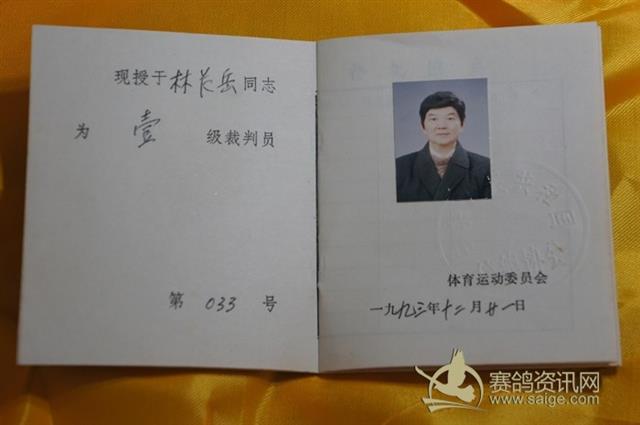 现授于林长岳同志
为 壹 级裁判员
第 033 号
体育运动委员会
一九九三年十二月廿一日
赛鸽资讯网
www.saige.com